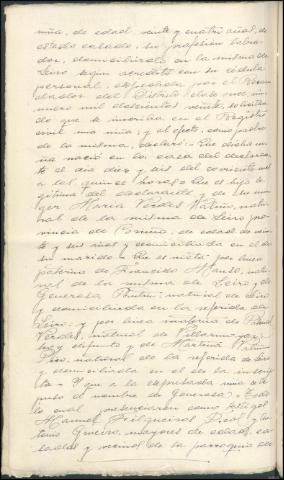 niña, de edad veinte y cuatro años, de
estado casado, su profesion labra-
dor, domiciliado en la misma de
Leiro segun acredita con su cédula
personal, espedida por el Recau-
dador del Distrito
mero mil doscientos veinte, solicitan-
do que se inscriba en el Registro
civil una niña; y al efecto, como padre
de la misma, declaró: Que dicha ni-
ña nació en la casa del declaran-
te el dia diez y seis del corriente mes
a las quince horas. Que es hija le-
gitima del declarante y de su mu-
jer Maria Verdes Patiño, natu-
ral de la misma de Leiro pro-
vincia de Coruña, de edad de vein-
te y seis años y domiciliada en el de
su marido. Que es nieta; por linea
paterna de Francisco natu-
ral de la misma de Leiro, y de
Generosa natural de Leiro
y domiciliada en la referida de
Leiro; y por linea materna de
Verdes, natural de Villarmayor,
hoy difunto y de Martina Patiño
natural de la referida de Leiro
y domiciliada en el de la inscri-
ta. Y que a la espresada niña se le
puso el nombre de Generosa. Todo
lo cual presenciaron como testigos
Manuel Filgueiras y An-
tonio mayores de edad, ca-
sados y vecinos de la parroquia de